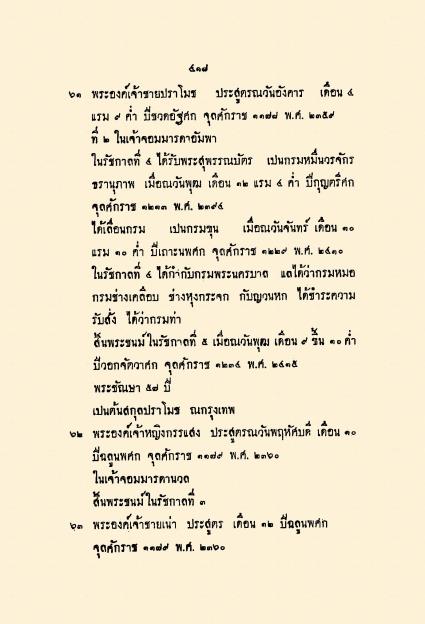 ๔๑๘
๖๑ พระองค์เจ้าชายปราโมช ประสูตรณวันอังคาร เดือน ๔
แรม ๙ ค่ำ ปีชวดอัฐศก จุลศักราช ๑๑๗๘ พ.ศ. ๒๓๕๙
ที่ ๒ ในเจ้าจอมมารดาอัมพา
ในรัชกาลที่ ๔ ได้รับพระสุพรรณบัตร เปนกรมหมื่นวรจักร
ธรานุภาพ เมื่อณวันพุฒ เดือน ๑๒ แรม ๔ ค่ำ ปีกุญตรีศก
จุลศักราช ๑๒๑๓ พ.ศ. ๒๓๙๔
ได้เลื่อนกรม เปนกรมขุน เมื่อณวันจันทร์ เดือน ๑๐
แรม ๑๐ ค่ำ ปีเถาะนพศก จุลศักราช ๑๒๒๙ พ.ศ. ๒๔๑๐
ในรัชกาลที่ ๔ ได้กำกับกรมพระนครบาล แลได้ว่ากรมหมอ
กรมช่างเคลือบ ช่างหุงกระจก กับญวนหก ได้ชำระความ
รับสั่ง ได้ว่ากรมท่า
สิ้นพระชนม์ในรัชกาลที่ ๕ เมื่อณวันพุฒ เดือน ๙ ขึ้น ๑๐ ค่ำ
ปีวอกจัตวาศก จุลศักราช ๑๒๓๔ พ.ศ. ๒๔๑๕
พระชัณษา ๕๗ ปี
เปนต้นสกุลปราโมช ณกรุงเทพ
๖๒ พระองค์เจ้าหญิงกรรแสง ประสูตรณวันพฤหัศบดี เดือน ๑๐
ปีฉลูนพศก จุลศักราช ๑๑๗๙ พ.ศ. ๒๓๖๐
ในเจ้าจอมมารดานวล
สิ้นพระชนม์ในรัชกาลที่ ๓
๖๓ พระองค์เจ้าชายเน่า ประสูตร เดือน ๑๒ ปีฉลูนพศก
จุลศักราช ๑๑๗๙ พ.ศ. ๒๓๖๐